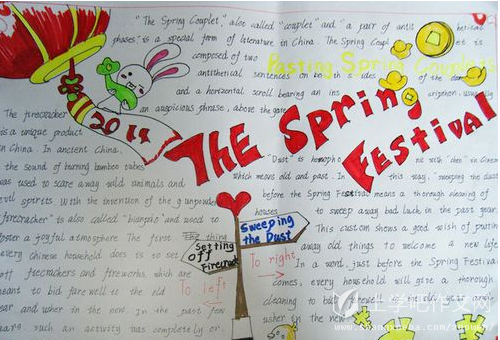 "The Spring Couplet," also called "couplet" and "a pair of antithetical
phases" is a special form of literature in China. The Spring Couplet is
composed of two
antithetical sentences on both sides of the door
and a horizontal scroll bearing an inscription, usually
an auspicious phrase, above the gate
Pasting Spring Couplets
2019
The Spring
Festival
The firecracker
is a unique product
in China. In ancient China,
the sound of burning bamboo tubes
was used to scare away wild animals and
evil spirits. With the invention of the gunpowder
"firecracker" is also called "bianpao" and used to
foster a joyful atmosphere. The first thing
every Chinese household does is to set
off firecrackers and fireworks, which are
meant to bid farewell to the old
year and usher in the new. In the past few
years, such an activity was completely or
Sweeping
the Dust
Setting
off
Firecrackers
To left
To right
"Dust" is homophonic with "chen" in Chinese
which means old and past. In this way, "sweeping the dust"
before the Spring Festival means a thorough cleaning of
houses to sweep away bad luck in the past year
This custom shows a good wish of putting
away old things to welcome a new life
In a word, just before the Spring Festival
comes, every household will give a thorough
cleaning to bid farewell to the old year and
usher in the new
上学吧作文网